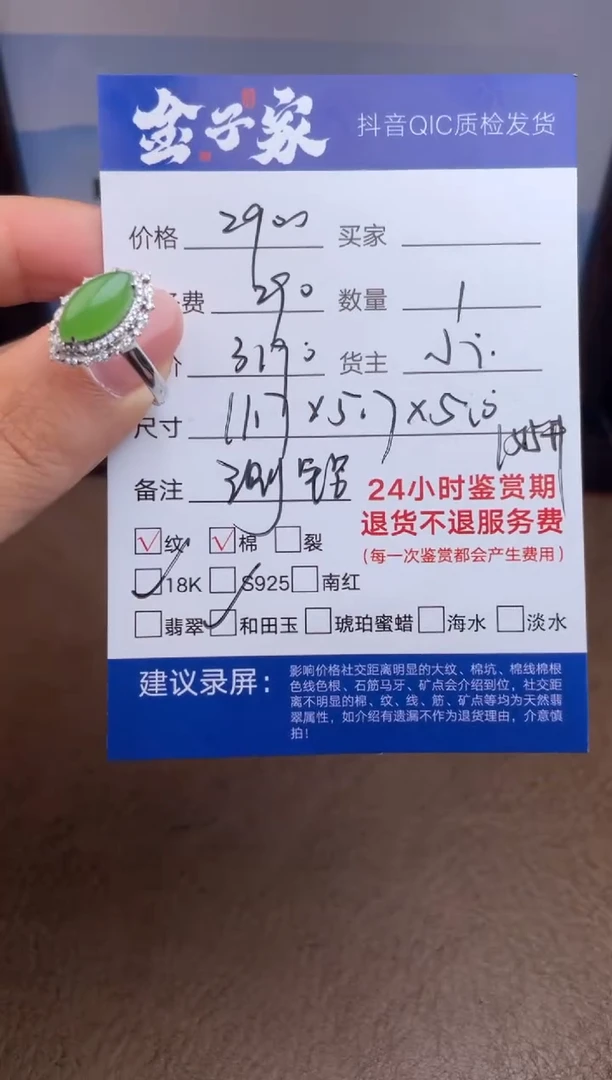 金子家 抖音QIC质检发货
价格 2900 买家
费 290 数量 1
价 3190 货主
尺寸 11.7×5.7×5.0
备注
24小时鉴赏期
退货不退服务费
(每一次鉴赏都会产生费用)
纹 棉 裂
18K S925 南红
翡翠 和田玉 琥珀蜜蜡 海水 淡水
建议录屏:
影响价格社交距离明显的大纹、棉坑、棉线棉根
色线色根、石筋马牙、矿点会介绍到位,社交距
离不明显的棉、纹、线、筋、矿点等均为天然翡
翠属性,如介绍有遗漏不作为退货理由,介意慎
拍!